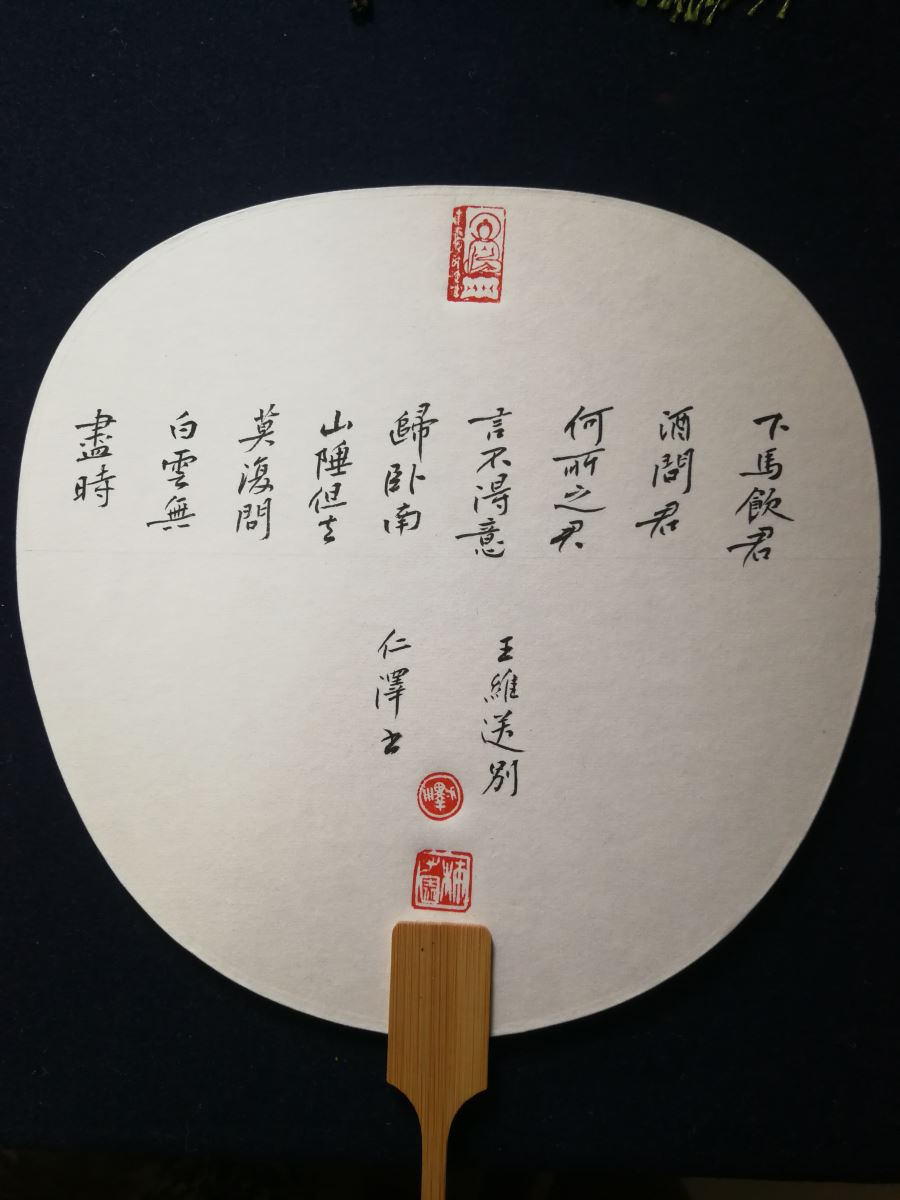 下馬飲君
酒問君
何所之君
言不得意
歸卧南
山陲但去
莫復問
白雲無
盡時
王維送別
仁澤书